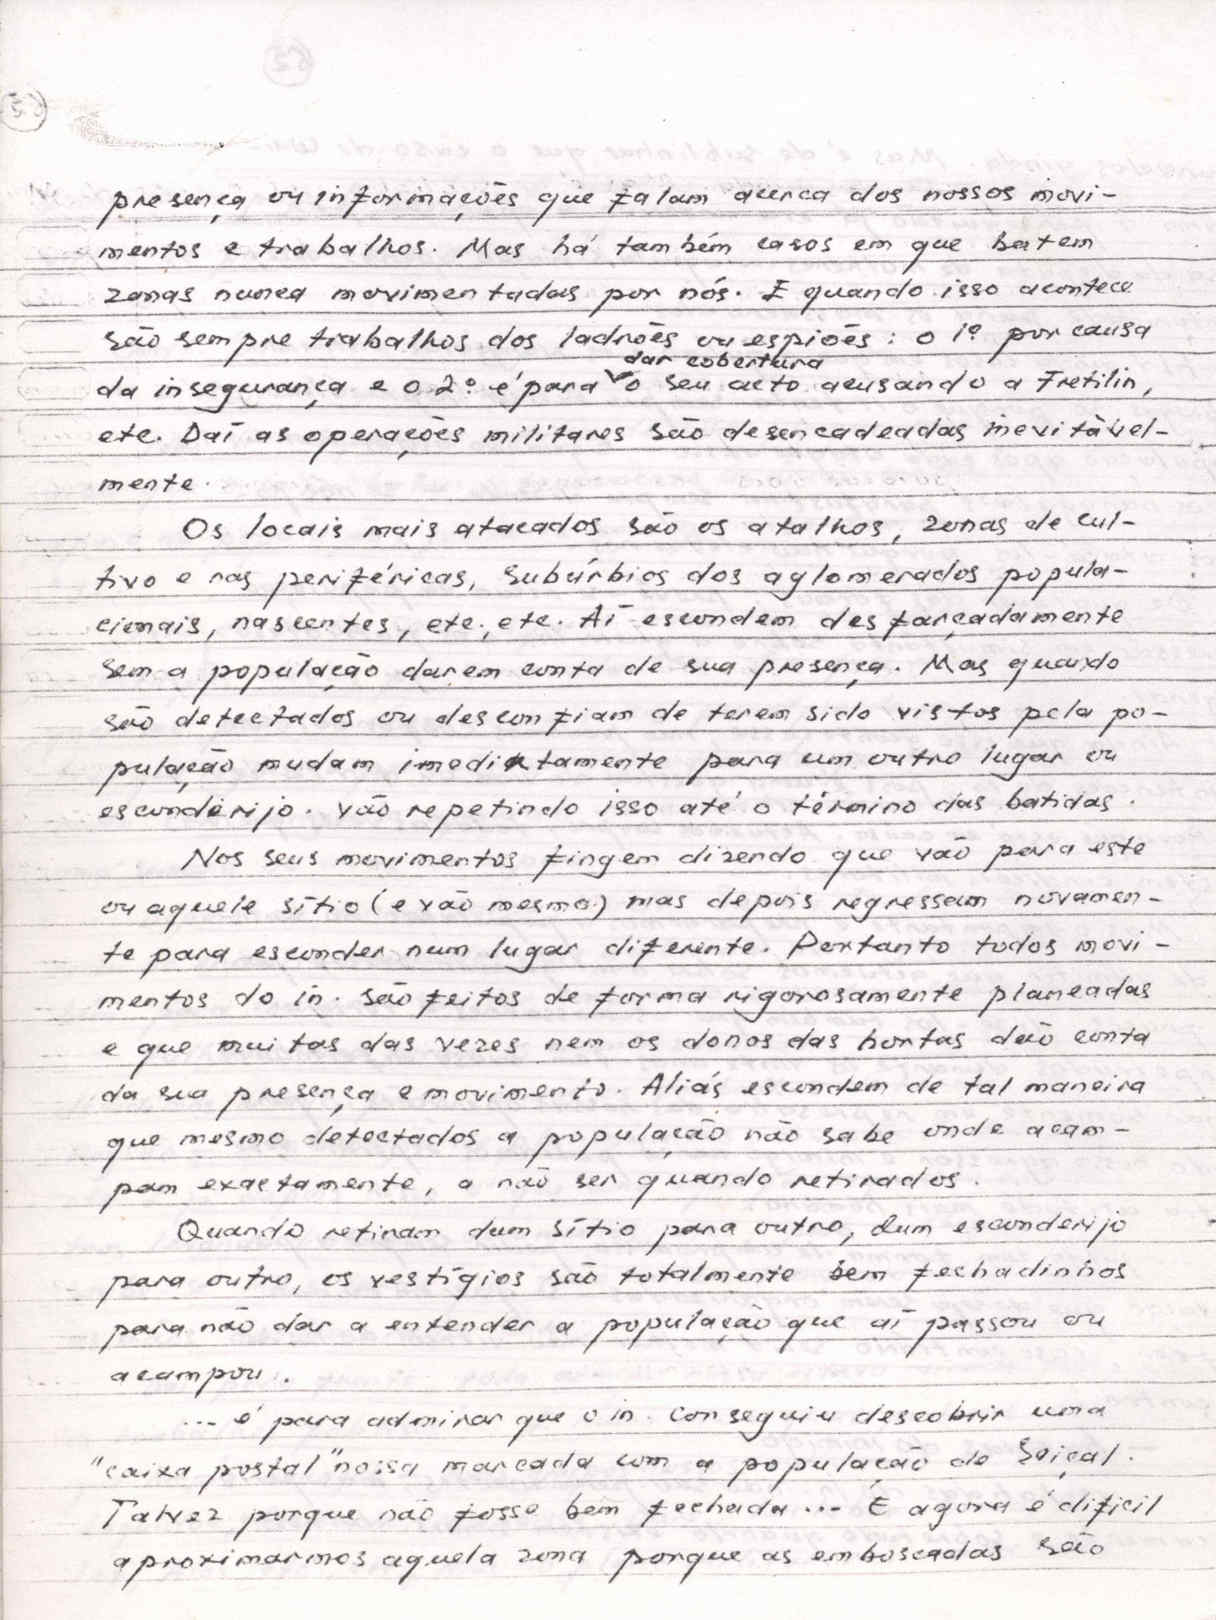 presença ou informações que falam acerca dos nossos movi-
mentos e trabalhos. Mas há também casos em que batem
zonas nunca movimentadas por nós. E quando isso acontece
são sempre trabalhos dos ladrões ou espiões: o 1º por causa
dar cobertura
da insegurança e o 2º é para o seu acto acusando a Fretilin,
etc. Daí as operações militares são desencadeadas inevitàvel-
mente.
Os locais mais atacados são os atalhos, zonas de cul-
tivo e nas periféricas, subúrbios dos aglomerados popula-
cionais, nascentes, etc., etc. Aí escondem desfarçadamente
sem a população darem conta de sua presença. Mas quando
são detectados ou desconfiam de terem sido vistos pela po-
pulação mudam imediatamente para um outro lugar ou
esconderijo. Vão repetindo isso até o término das batidas.
Nos seus movimentos fingem dizendo que vão para este
ou aquele sítio (e vão mesmo) mas depois regressam novamen-
te para esconder num lugar diferente. Portanto todos movi-
mentos do in. são feitos de forma rigorosamente planeadas
e que muitas das vezes nem os donos das hortas dão conta
da sua presença e movimento. Aliás escondem de tal maneira
que mesmo detectados a população não sabe onde acam-
pam exactamente, a não ser quando retirados.
Quando retiram dum sítio para outro, dum esconderijo
para outro, os vestígios são totalmente bem fechadinhos
para não dar a entender a população que aí passou ou
acampou.
... é para admirar que o in. conseguiu descobrir uma
"caixa postal" nossa marcada com a população de Seiçal.
Talvez porque não fosse bem fechada... E agora é dificil
aproximarmos aquela zona porque as emboscadas são